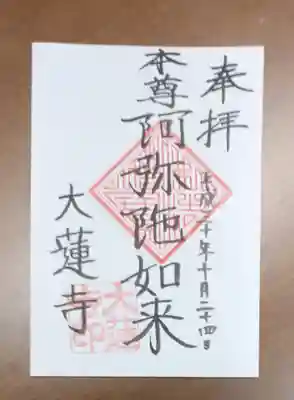 奉拝
平成二十年十月二十四日
本尊
阿弥陀如来
大蓮寺